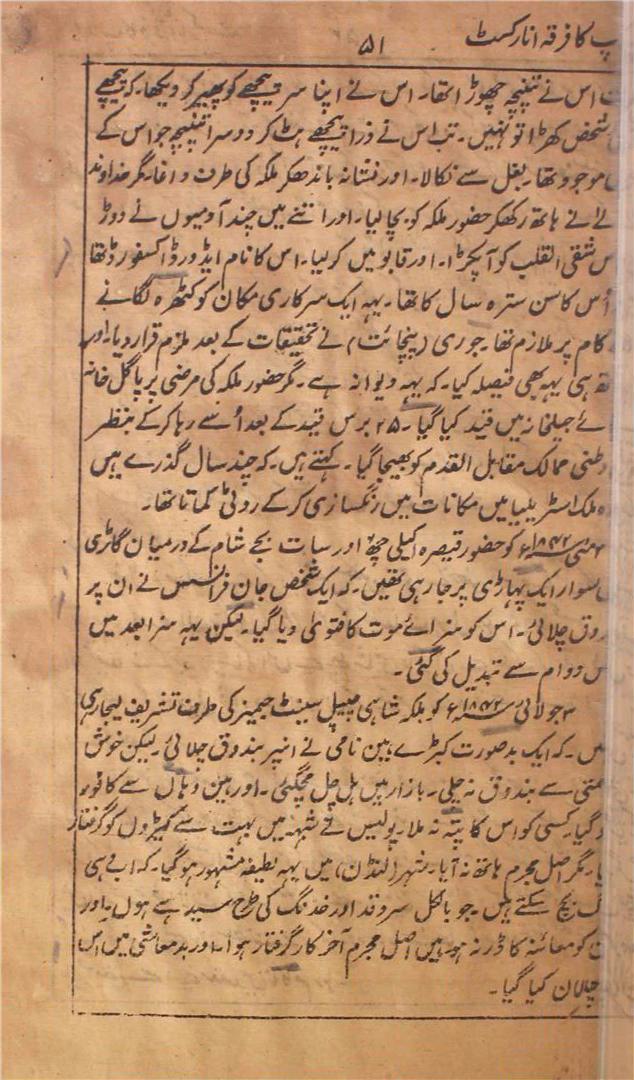 پ کا فرقہ انارکسٹ ۵۱
اس نے تپنچہ چھوڑا تھا۔ اس نے اپنا سر پیچھے کو پھیر کر دیکھا۔ کہ پیچھے
شخص کھڑا تو نہیں۔ تب اس نے ذرا پیچھے ہٹ کر دوسرا تپنچہ جو اس کے
موجود تھا۔ بغل سے نکالا۔ اور نشانہ باندھکر ملکہ کی طرف داغا۔ مگر خداوند
لے نے ہاتھ رکھکر حضور ملکہ کو بچا لیا۔ اور اتنے میں چند آدمیوں نے دوڑ
س شقی القلب کو آپکڑا۔ اور قابو میں کر لیا۔ اس کا نام ایڈورڈ آکسفورڈ تھا
اُس کا سن سترہ سال کا تھا۔ یہہ ایک سرکاری مکان کو کٹھرہ لگانے
کام پر ملازم تھا۔ جوری (پنچائت) نے تحقیقات کے بعد ملزم قرار دیا۔ اور
تھ ہی یہہ بھی فیصلہ کیا۔ کہ یہہ دیوانہ ہے۔ مگر حضور ملکہ کی مرضی پر پاگل خانہ
ئے جیلخانہ میں قید کیا گیا۔ ۲۵ برس قید کے بعد اُسے رہا کر کے بنظر
وطنی ممالک مقابل القدم کو بھیجا گیا۔ کہتے ہیں۔ کہ چند سال گذرے ہیں
ہ ملک اسٹریلیا میں مکانات میں رنگسازی کر کے روٹی کماتا تھا۔
مئی ۱۸۴۲ء کو حضور قیصرہ اکیلی چھ اور سات بجے شام کے درمیان گاڑی
سوار ایک پہاڑی پر جا رہی تھیں۔ کہ ایک شخص جان فرانسس نے ان پر
دوق چلائی۔ اس کو سزائے موت کا فتویٰ دیا گیا۔ لیکن یہہ سزا بعد میں
س دوام سے تبدیل کی گئی۔
۳ جولائی ۱۸۴۲ء کو ملکہ شاہی چیپل سینٹ جیمز کی طرف تشریف لیجا رہی
یں۔ کہ ایک بدصورت کبڑے بین نامی نے انپر بندوق چلائی۔ لیکن خوش
متی سے بندوق نہ چلی۔ بازار میں ہل چل مچگئی۔ اور بین وہاں سے کافور
گیا۔ کسی کو اس کا پتہ نہ ملا۔ پولیس نے شبہہ میں بہت سے کبڑوں کو گرفتار
یا۔ مگر اصل مجرم ہاتھ نہ آیا۔ شہر (لنڈن) میں یہہ لطیفہ مشہور ہو گیا۔ کہ اب وہی
گ بچ سکتے ہیں۔ جو بالکل سرو قد اور خدنگ کی طرح سیدھے ہوں۔ اور
ن کو معائنہ کا ڈر نہ ہو۔ بین اصل مجرم آخر کار گرفتار ہوا۔ اور بدمعاشی میں اس
چالان کیا گیا۔